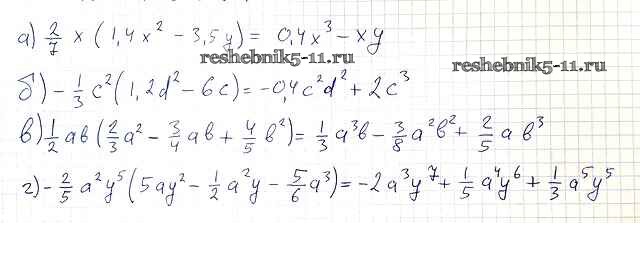 а) 2/7 x (1,4x² − 3,5y) = 0,4x³ − xy
reshebnik5-11.ru
reshebnik5-11.ru
б) −1/3 c² (1,2d² − 6c) = −0,4c²d² + 2c³
в) 1/2 ab (2/3 a² − 3/4 ab + 4/5 b²) = 1/3 a³b − 3/8 a²b² + 2/5 a b³
г) −2/5 a²y⁵ (5ay² − 1/2 a²y − 5/6 a³) = −2a³y⁷ + 1/5 a⁴y⁶ + 1/3 a⁵y⁵